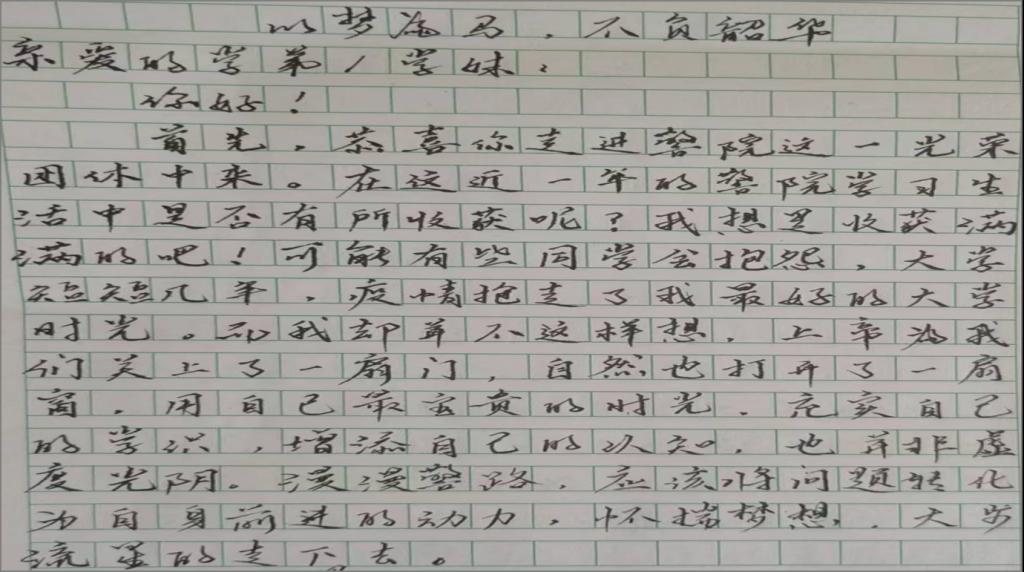 以梦为马，不负韶华
亲爱的学弟/学妹：
你好！
首先，恭喜你走进警院这一光荣
团体中来。在这近一年的警院学习生
活中是否有所收获呢？我想是收获满
满的吧！可能有些同学会抱怨，大学
短短几年，疫情抱走了我最好的大学
时光。而我却并不这样想，上帝为我
们关上了一扇门，自然也打开了一扇
窗，用自己最宝贵的时光，充实自己
的学识，增添自己的认知，也并非虚
度光阴。漫漫警路，应该将问题转化
为自身前进的动力，怀揣梦想，大步
流星的走下去。